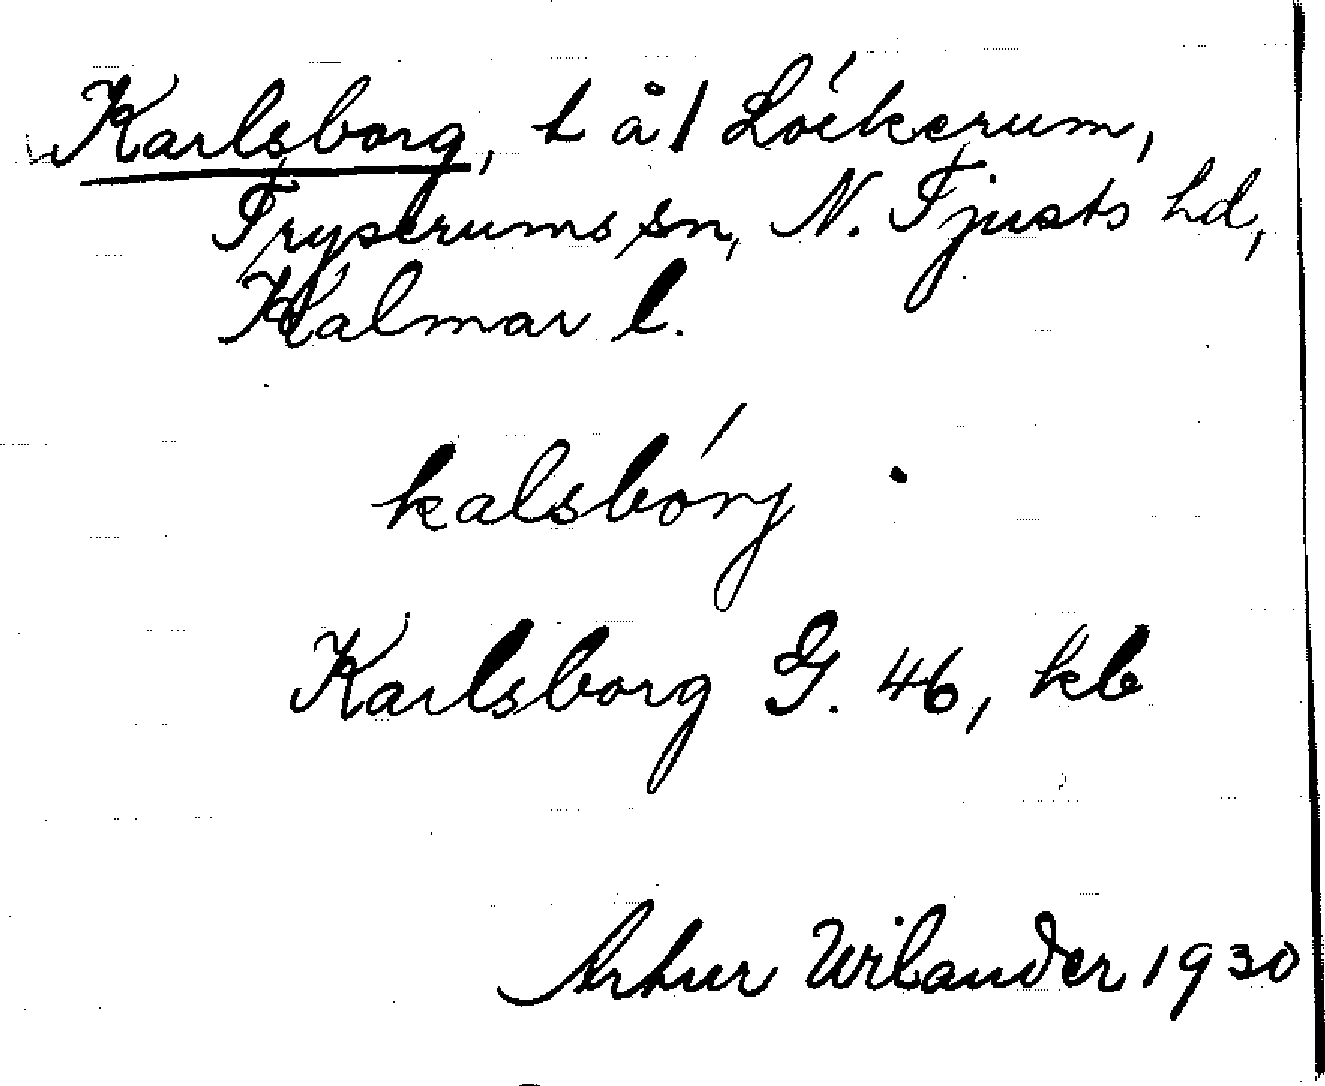 Karlsborg, t å 1 Löckerum,
Tryserums sn, N. Tjusts hd,
Kalmar l.
kalsbórj
Karlsborg G. 46, kb
Artur Wilander 1930